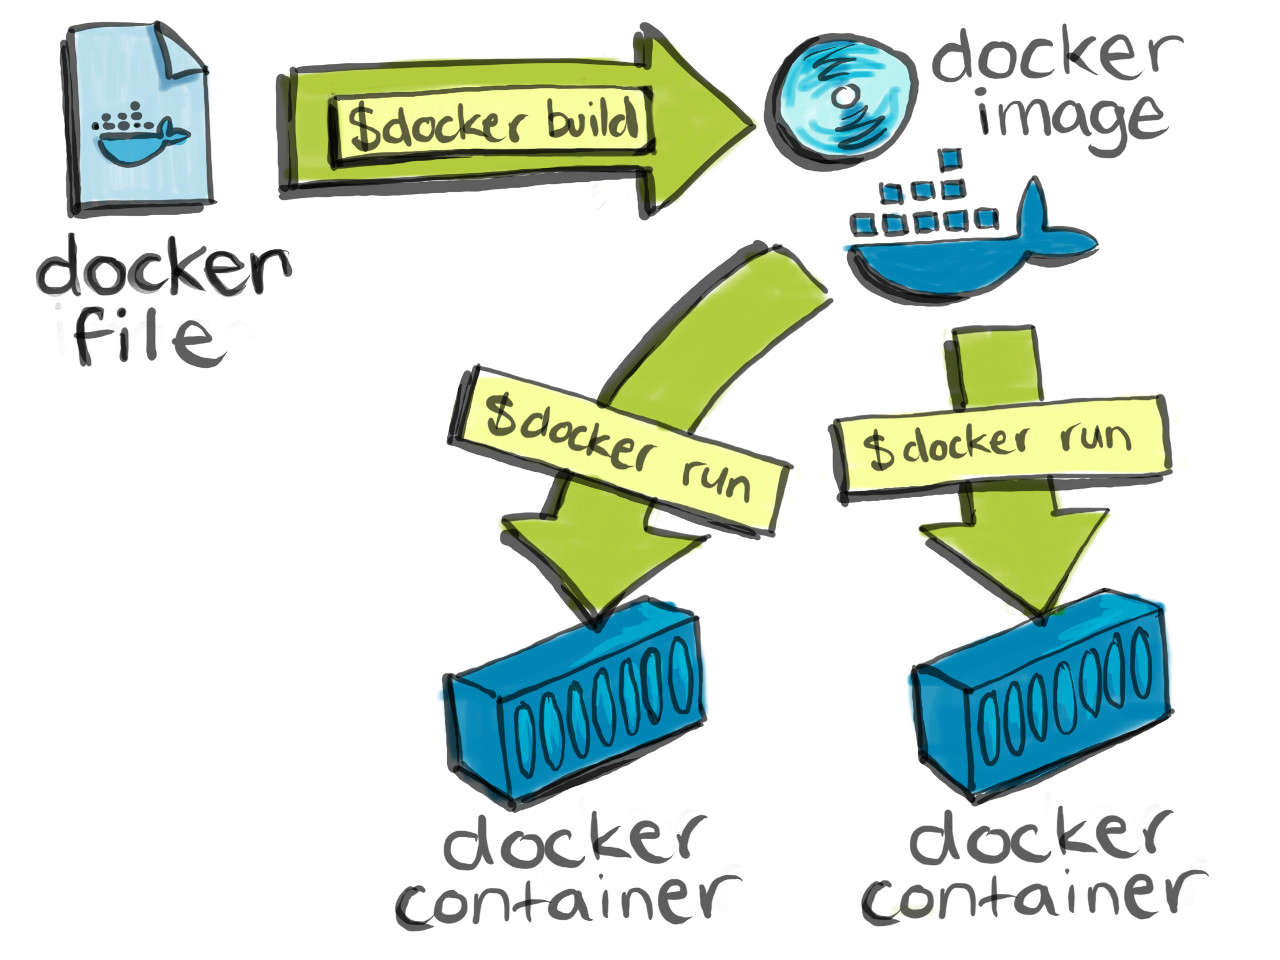 $docker build
docker
image
docker
file
$docker run
$docker run
docker
container
docker
container